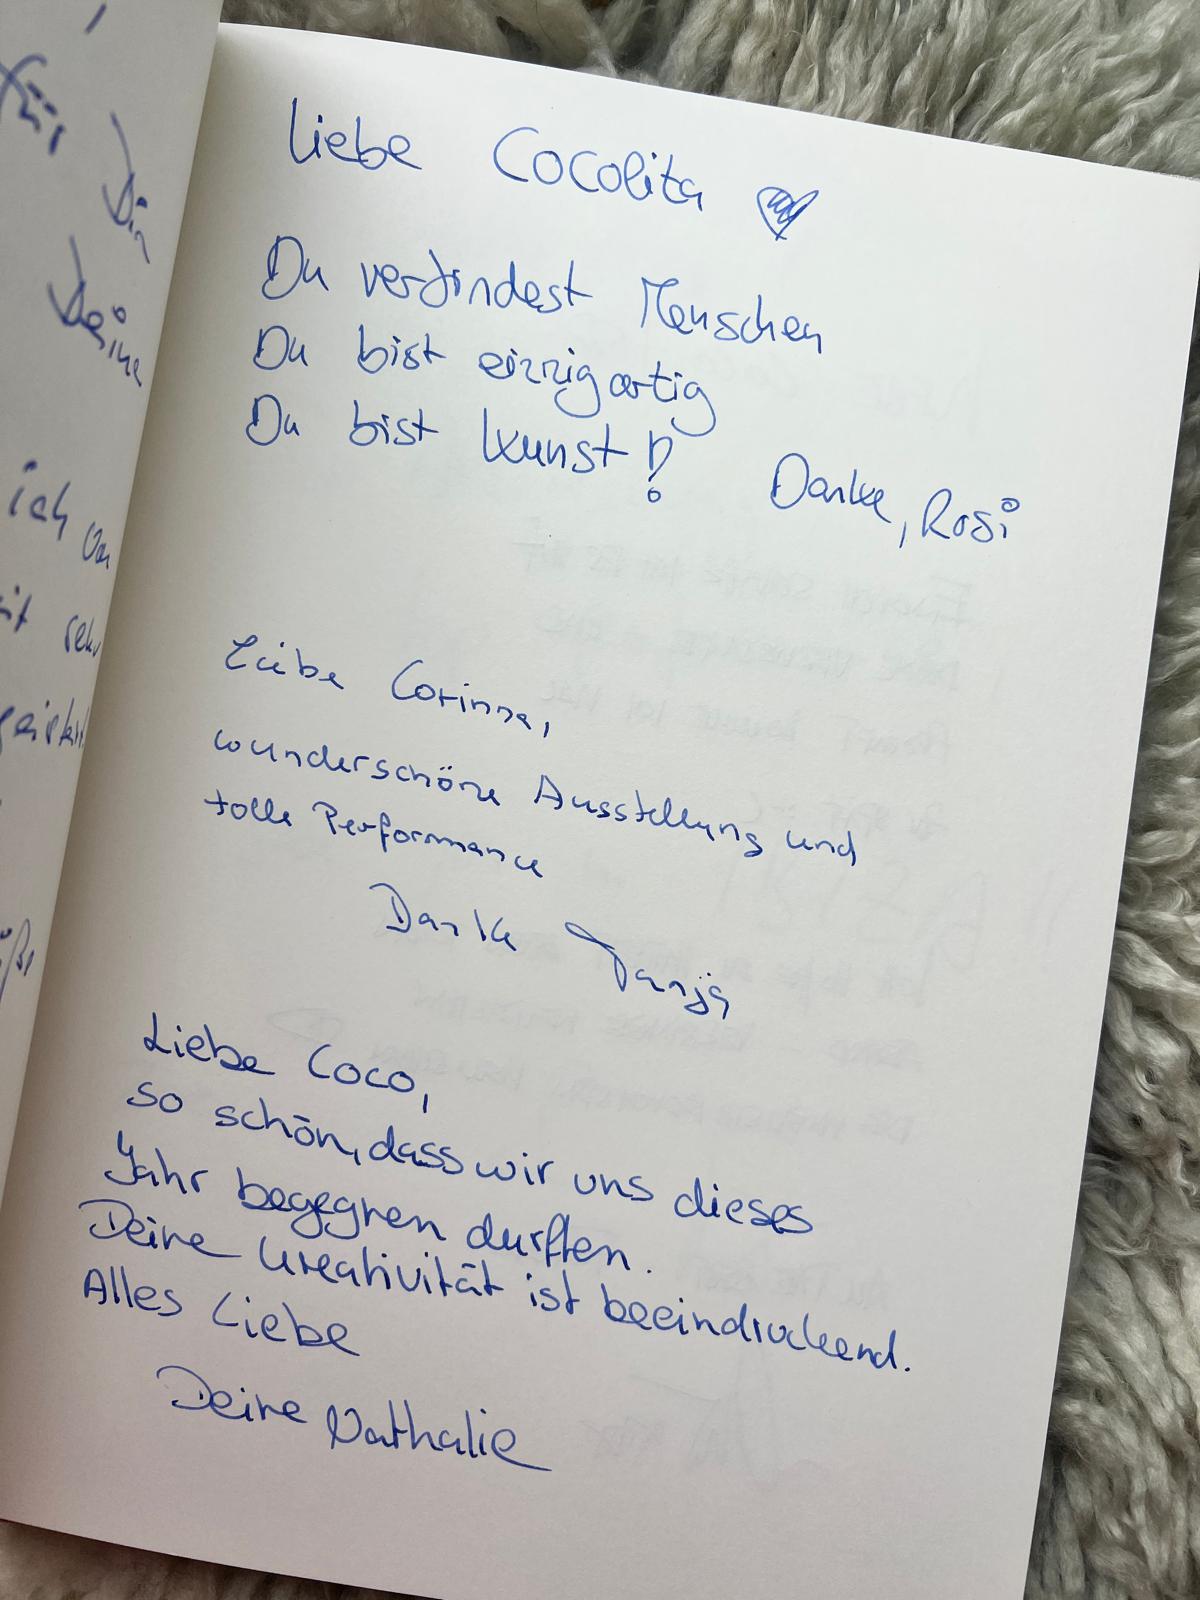 für
Dir
Deine
ich
sehr
Liebe Cocolita
Du verbindest Menschen
Du bist einzigartig
Du bist Kunst!
Danke, Rosi
Liebe Corinna,
wunderschöne Ausstellung und
tolle Performance
Danke Tanja
Liebe Coco,
so schön, dass wir uns dieses
Jahr begegnen durften.
Deine Kreativität ist beeindruckend.
Alles Liebe
Deine Nathalie